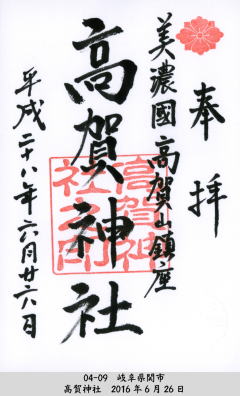 奉拝
美濃國高賀山鎮座
高賀神社
高賀神社之印
平成二十八年六月廿六日
04-09 岐阜県関市
高賀神社 2016年6月26日